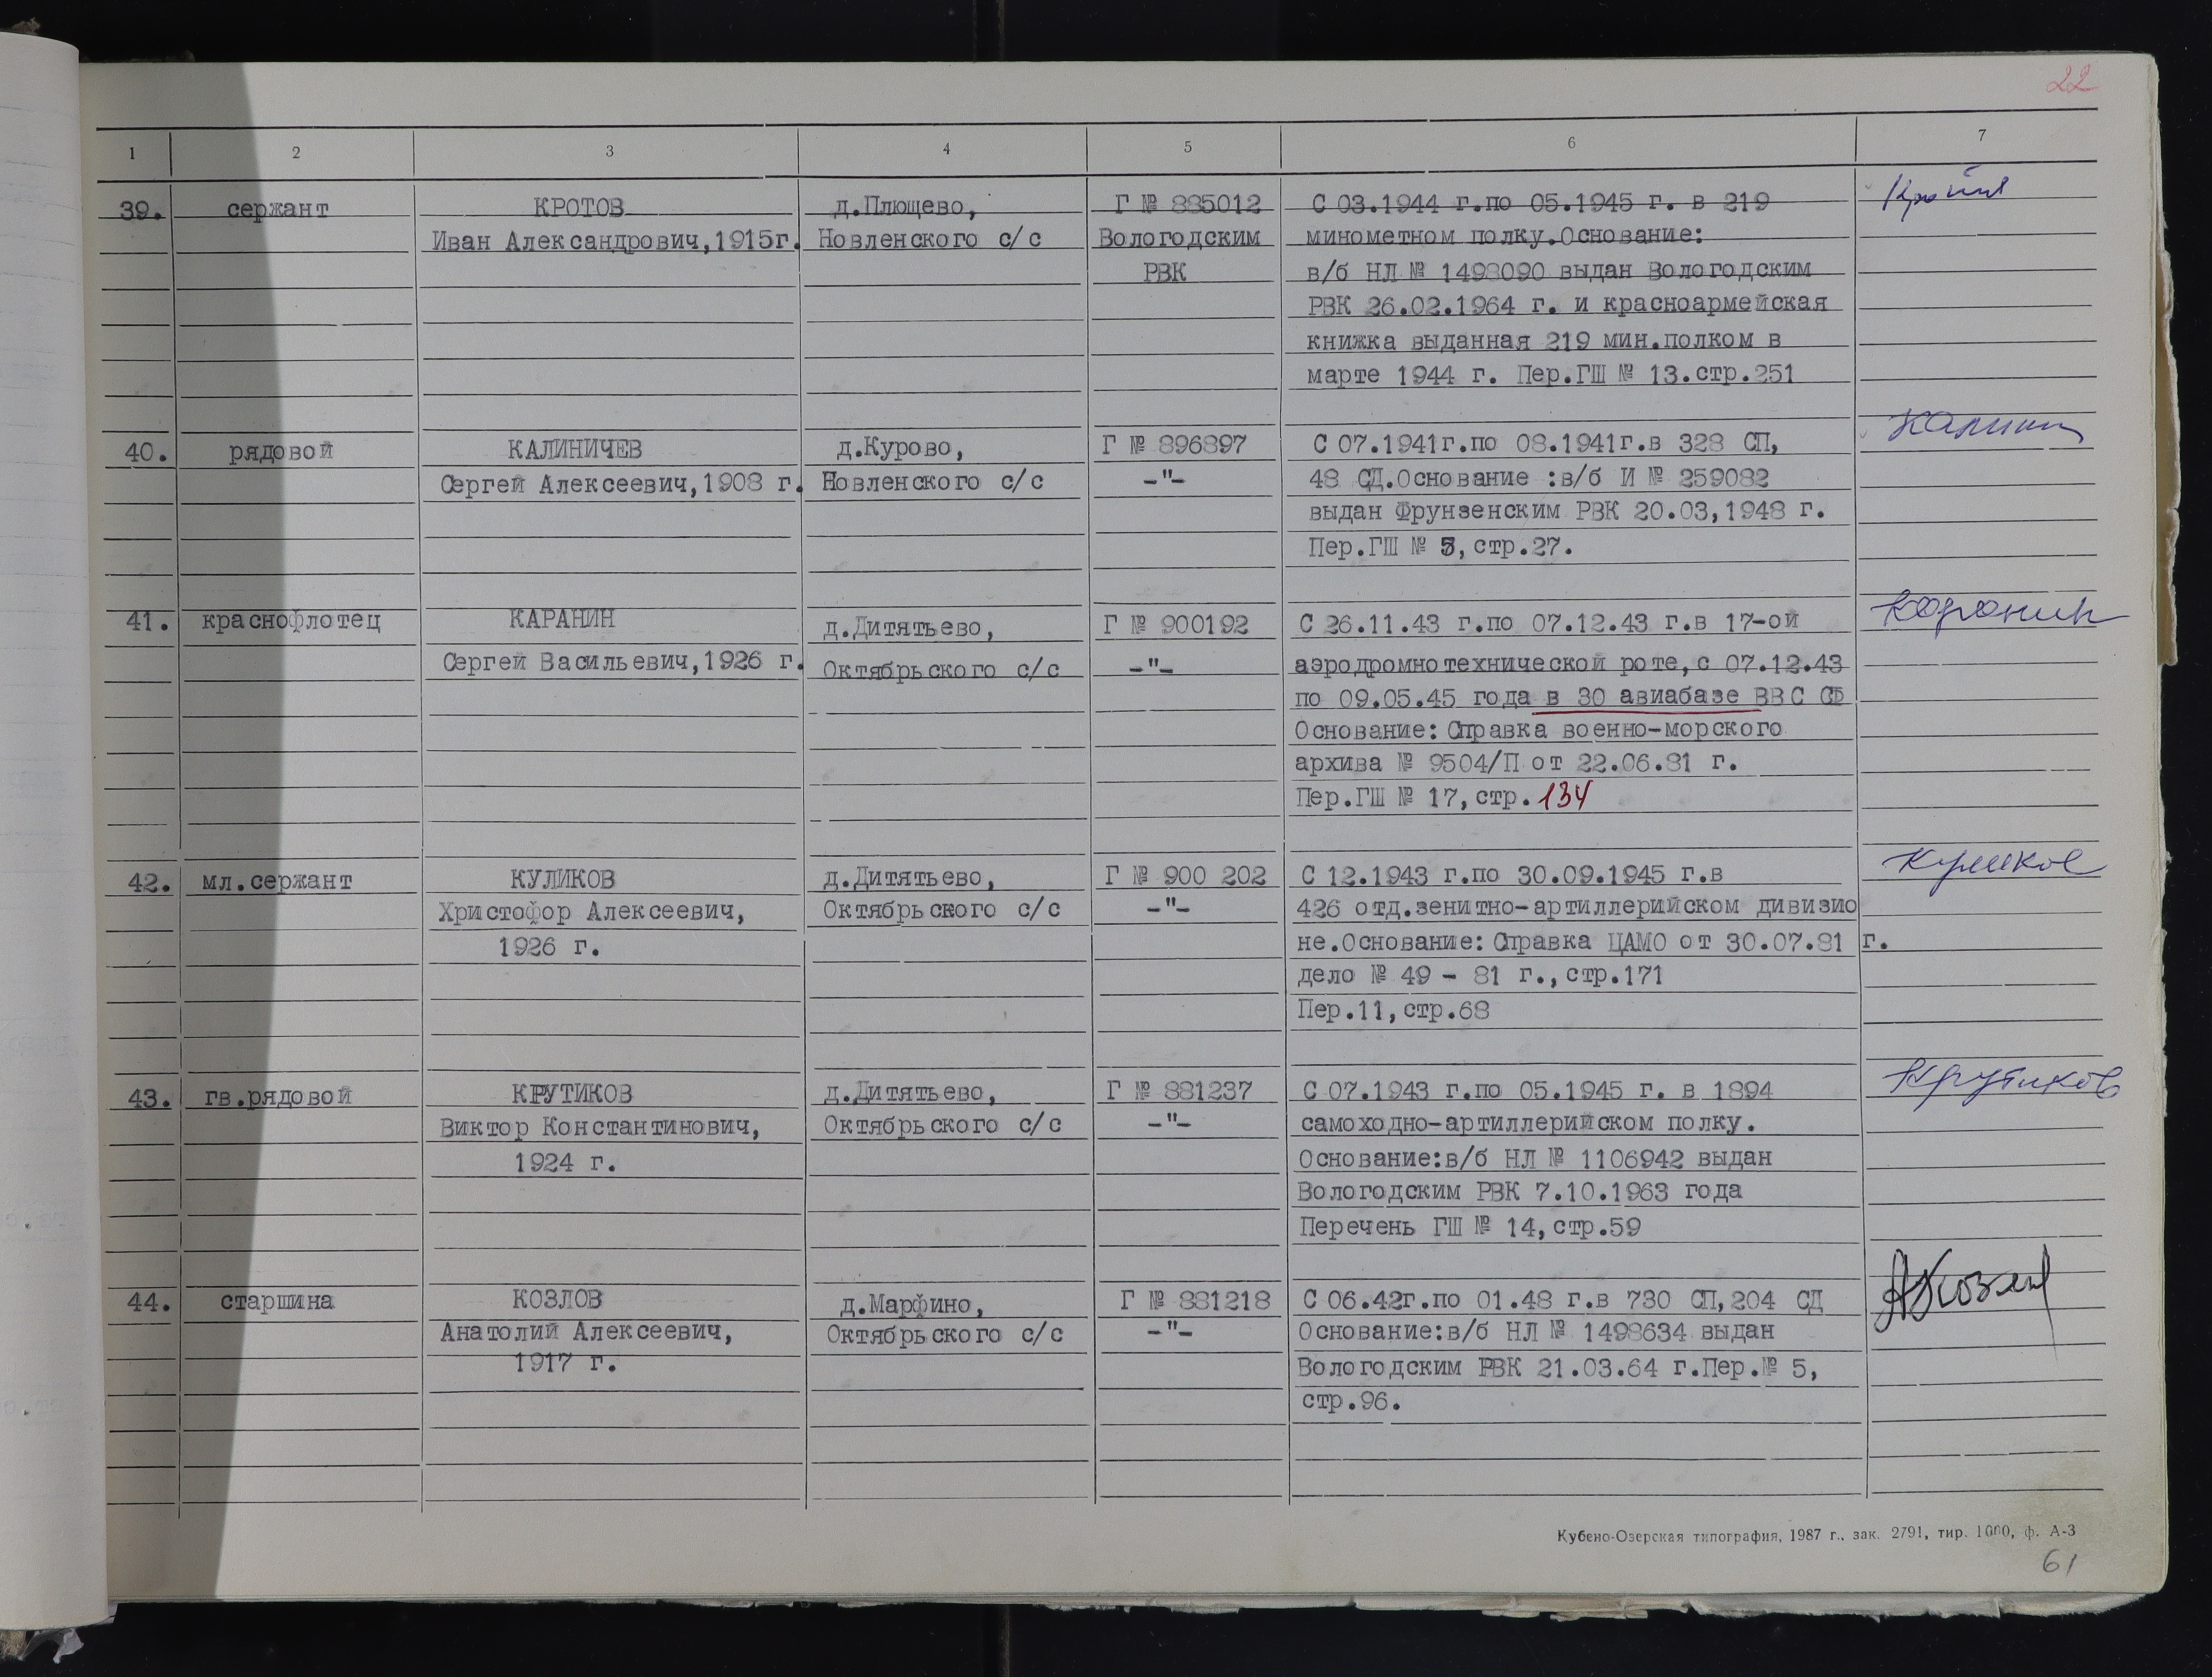 22
1 2 3 4 5 6 7
39. сержант КРОТОВ д.Плющево, Г № 885012 С 03.1944 г.по 05.1945 г. в 219
Иван Александрович,1915г. Новленского с/с Вологодским минометном полку.Основание:
РВК в/б НЛ № 1498090 выдан Вологодским
РВК 26.02.1964 г. и красноармейская
книжка выданная 219 мин.полком в
марте 1944 г. Пер.ГШ № 13.стр.251
40. рядовой КАЛИНИЧЕВ д.Курово, Г № 896897 С 07.1941г.по 08.1941г.в 328 СП, Калинич
Сергей Алексеевич,1908 г. Новленского с/с -"- 48 СД.Основание :в/б И № 259082
выдан Фрунзенским РВК 20.03,1948 г.
Пер.ГШ № 5,стр.27.
41. краснофлотец КАРАНИН д.Дитятьево, Г № 900192 С 26.11.43 г.по 07.12.43 г.в 17-ой Каранин
Сергей Васильевич,1926 г. Октябрьского с/с -"- аэродромнотехнической роте,с 07.12.43
по 09.05.45 года в 30 авиабазе ВВС СФ
Основание: Справка военно-морского
архива № 9504/П от 22.06.81 г.
Пер.ГШ № 17,стр.134
42. мл.сержант КУЛИКОВ д.Дитятьево, Г № 900 202 С 12.1943 г.по 30.09.1945 г.в Куликов
Христофор Алексеевич, Октябрьского с/с -"- 426 отд.зенитно-артиллерийском дивизио
1926 г. не.Основание: Справка ЦАМО от 30.07.81 г.
дело № 49 - 81 г.,стр.171
Пер.11,стр.68
43. гв.рядовой КРУТИКОВ д.Дитятьево, Г № 881237 С 07.1943 г.по 05.1945 г. в 1894 Крутиков
Виктор Константинович, Октябрьского с/с -"- самоходно-артиллерийском полку.
1924 г. Основание:в/б НЛ № 1106942 выдан
Вологодским РВК 7.10.1963 года
Перечень ГШ № 14,стр.59
44. старшина КОЗЛОВ д.Марфино, Г № 881218 С 06.42г.по 01.48 г.в 730 СП,204 СД АКозлов
Анатолий Алексеевич, Октябрьского с/с -"- Основание:в/б НЛ № 1498634 выдан
1917 г. Вологодским РВК 21.03.64 г.Пер.№ 5,
стр.96.
Кубено-Озерская типография, 1987 г., зак. 2791, тир. 1000, ф. А-3
61